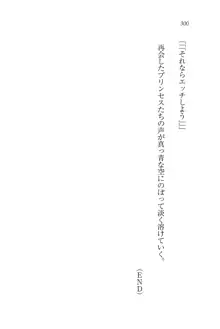 300
「「「それならエッチしよう」」」
再会したプリンセスたちの声が真っ青な空にのぼって淡く溶けていく。
（ＥＮＤ）